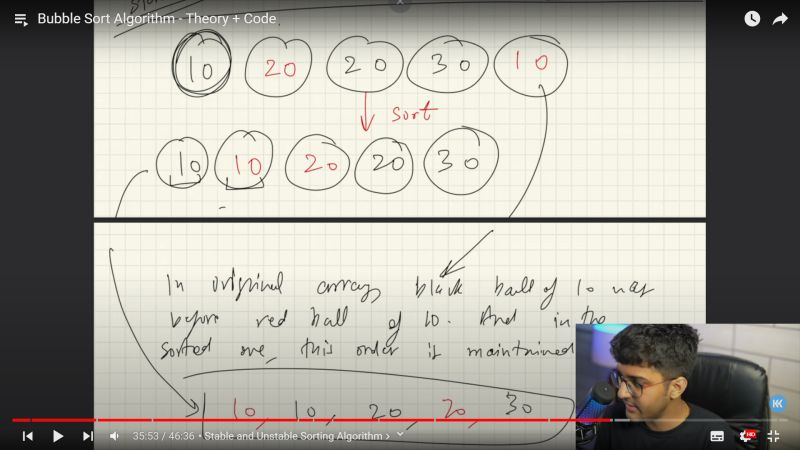 Bubble Sort Algorithm - Theory + Code
10 20 20 30 10
sort
10 10 20 20 30
In original array, black ball of 10 was
before red ball of 10. And in the
sorted one, this order is maintained
10, 10, 20, 20, 30
35:53 / 46:36 • Stable and Unstable Sorting Algorithm >
HD